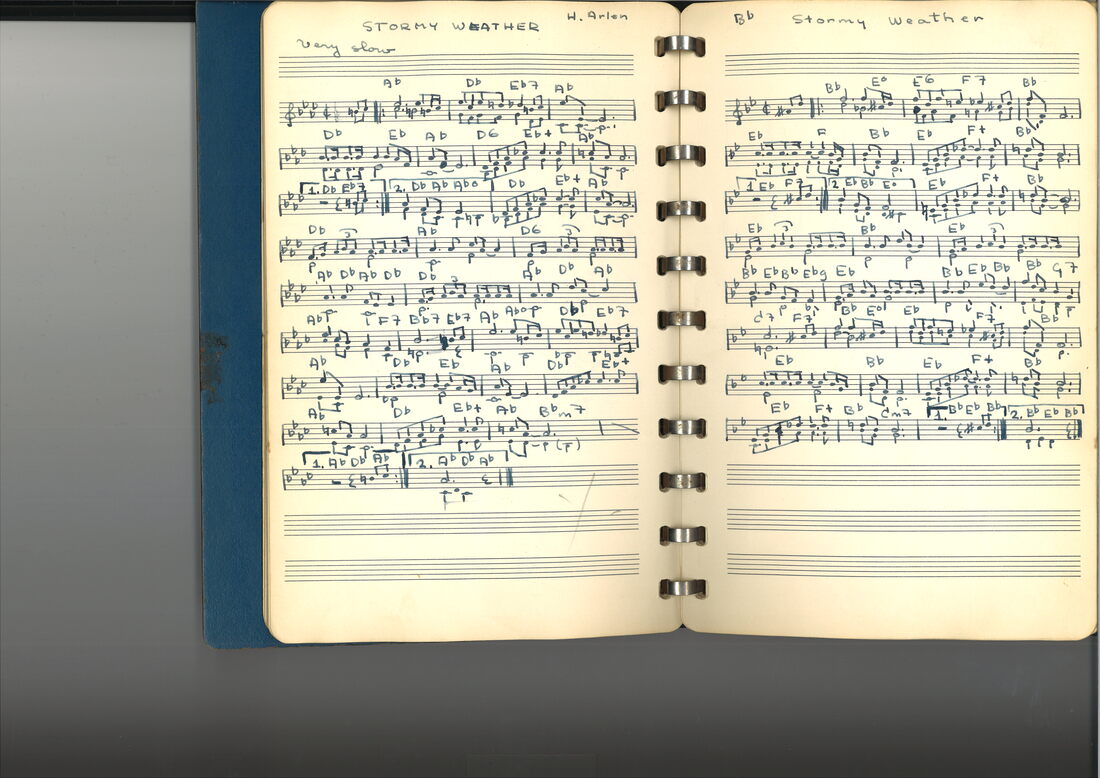 STORMY WEATHER
H. Arlen
Very slow
Ab Db Eb7 Ab
Db Eb Ab D6 Eb+ Ab
1. Db Eb7 2. Db Ab Abo Db Eb+ Ab
Db 3 Ab D6 3
Ab Db Ab Db 3 Ab Db Ab
Ab F7 Bb7 Eb7 Ab Abo Db Eb7
Ab Db Eb Ab Db Eb+
Ab Db Eb+ Ab Bbm7
1. Ab Db Ab 2. Ab Db Ab
Bb Stormy Weather
Bb Eo E6 F7 Bb
Eb F Bb Eb F+ Bb
1. Eb F7 2. Eb Bb Eo Eb F+ Bb
Eb 3 Bb Eb 3
Bb Eb Bb Eb9 Eb Bb Eb Bb Bb G7
C7 F7 Bb Eo Eb F7 Bb
Eb Bb Eb F+
Eb F+ Bb Cm7 1. Bb Eb Bb 2. Bb Eb Bb